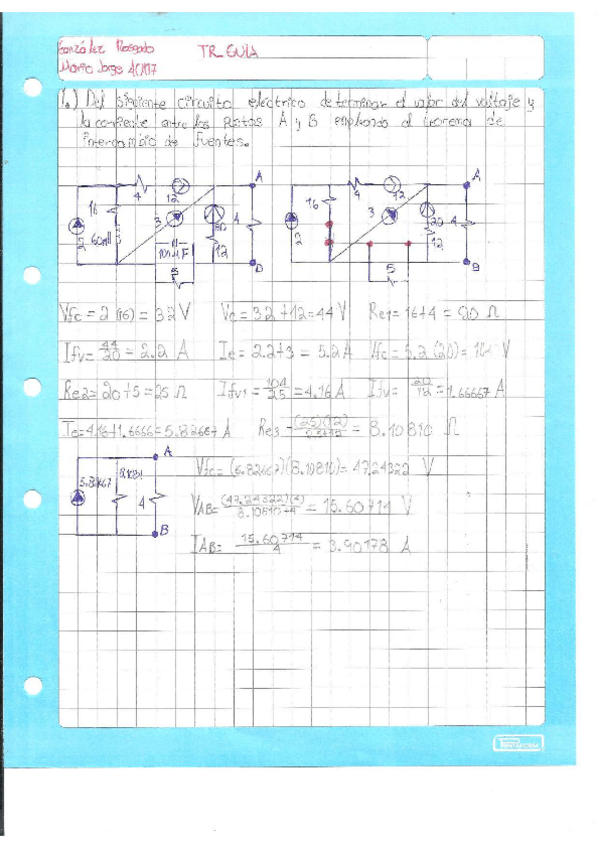 González Rosado
Mario Jorge 4CM17
TR_GUIA
1.) Del siguiente circuito eléctrico determinar el valor del voltaje y
la corriente entre los puntos A y B empleando el teorema de
intercambio de fuentes.
A A
4 12 4 12
16 3 20 4 16 3 20 4
2 60mH 12 2 12
100µF
5 5
B B
Vfc = 2 (16) = 32 V Ve = 32 + 12 = 44 V Re1 = 16+4 = 20 Ω
Ifv = 44/20 = 2.2 A Ie = 2.2+3 = 5.2 A Vfc = 5.2 (20) = 104 V
Re2 = 20+5 = 25 Ω Ifv1 = 104/25 = 4.16 A Ifv = 20/12 = 1.66667 A
Ie = 4.16+1.6666 = 5.82667 A Re3 = (25)(12)/25+12 = 8.10810 Ω
A
5.82667 8.1081 4
B
Vfc = (5.82667)(8.10810) = 47.24322 V
VAB = (47.24322)(4)/8.10810+4 = 15.60714 V
IAB = 15.60714/4 = 3.90178 A